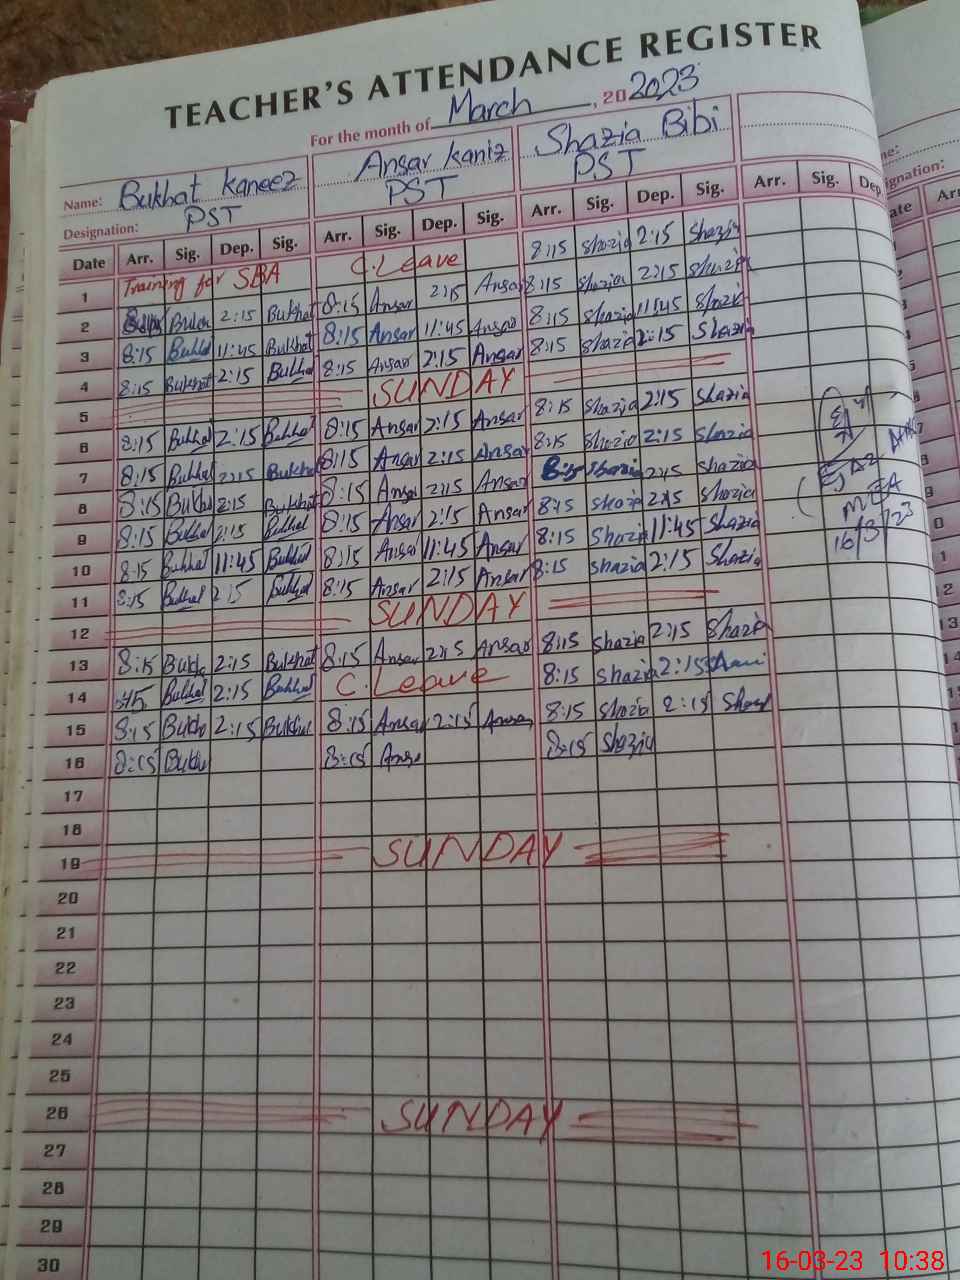 TEACHER'S ATTENDANCE REGISTER
For the month of March, 2023
Name: Bukhat Kaneez Ansar Kaniz Shazia Bibi
Designation: PST PST PST
Date Arr. Sig. Dep. Sig. Arr. Sig. Dep. Sig. Arr. Sig. Dep. Sig. Arr. Sig. Dep.
1 Training for SBA C. Leave 8:15 Shazia 2:15 Shazia
2 2:15 Bukhat 8:15 Ansar 2:15 Ansar 8:15 Shazia 2:15 Shazia
3 8:15 Bukhat 11:45 Bukhat 8:15 Ansar 11:45 Ansar 8:15 Shazia 11:45 Shazia
4 8:15 Bukhat 2:15 Bukhat 8:15 Ansar 2:15 Ansar 8:15 Shazia 2:15 Shazia
5 SUNDAY
6 8:15 Bukhat 2:15 Bukhat 8:15 Ansar 2:15 Ansar 8:15 Shazia 2:15 Shazia
7 8:15 Bukhat 2:15 Bukhat 8:15 Ansar 2:15 Ansar 8:15 Shazia 2:15 Shazia
8 8:15 Bukh 2:15 Bukhat 8:15 Ansar 2:15 Ansar Shazia 2:15 Shazia
9 8:15 Bukhat 2:15 Bukhat 8:15 Ansar 2:15 Ansar 8:15 Shazia 2:15 Shazia
10 8:15 Bukhat 11:45 Bukhat 8:15 Ansar 11:45 Ansar 8:15 Shazia 11:45 Shazia
11 8:15 Bukhat 2:15 Bukhat 8:15 Ansar 2:15 Ansar 8:15 Shazia 2:15 Shazia
12 SUNDAY
13 8:15 Bukh 2:15 Bukhat 8:15 Ansar 2:15 Ansar 8:15 Shazia 2:15 Shazia
14 :45 Bukhat 2:15 Bukhat C. Leave 8:15 Shazia 2:15
15 8:15 Bukh 2:15 Bukhat 8:15 Ansar 2:15 Ansar 8:15 Shazia 2:15 Shaz
16 8:15 Bukh 8:15 Ansa 8:15 Shazia
17
18
19 SUNDAY
20
21
22
23
24
25
26 SUNDAY
27
28
29
30
MEA
16/3/23
16-03-23 10:38